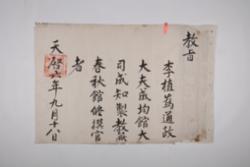 教旨
李植爲通政
大夫成均館大
司成知製教兼
春秋館修撰官
者
天啓六年九月十八日